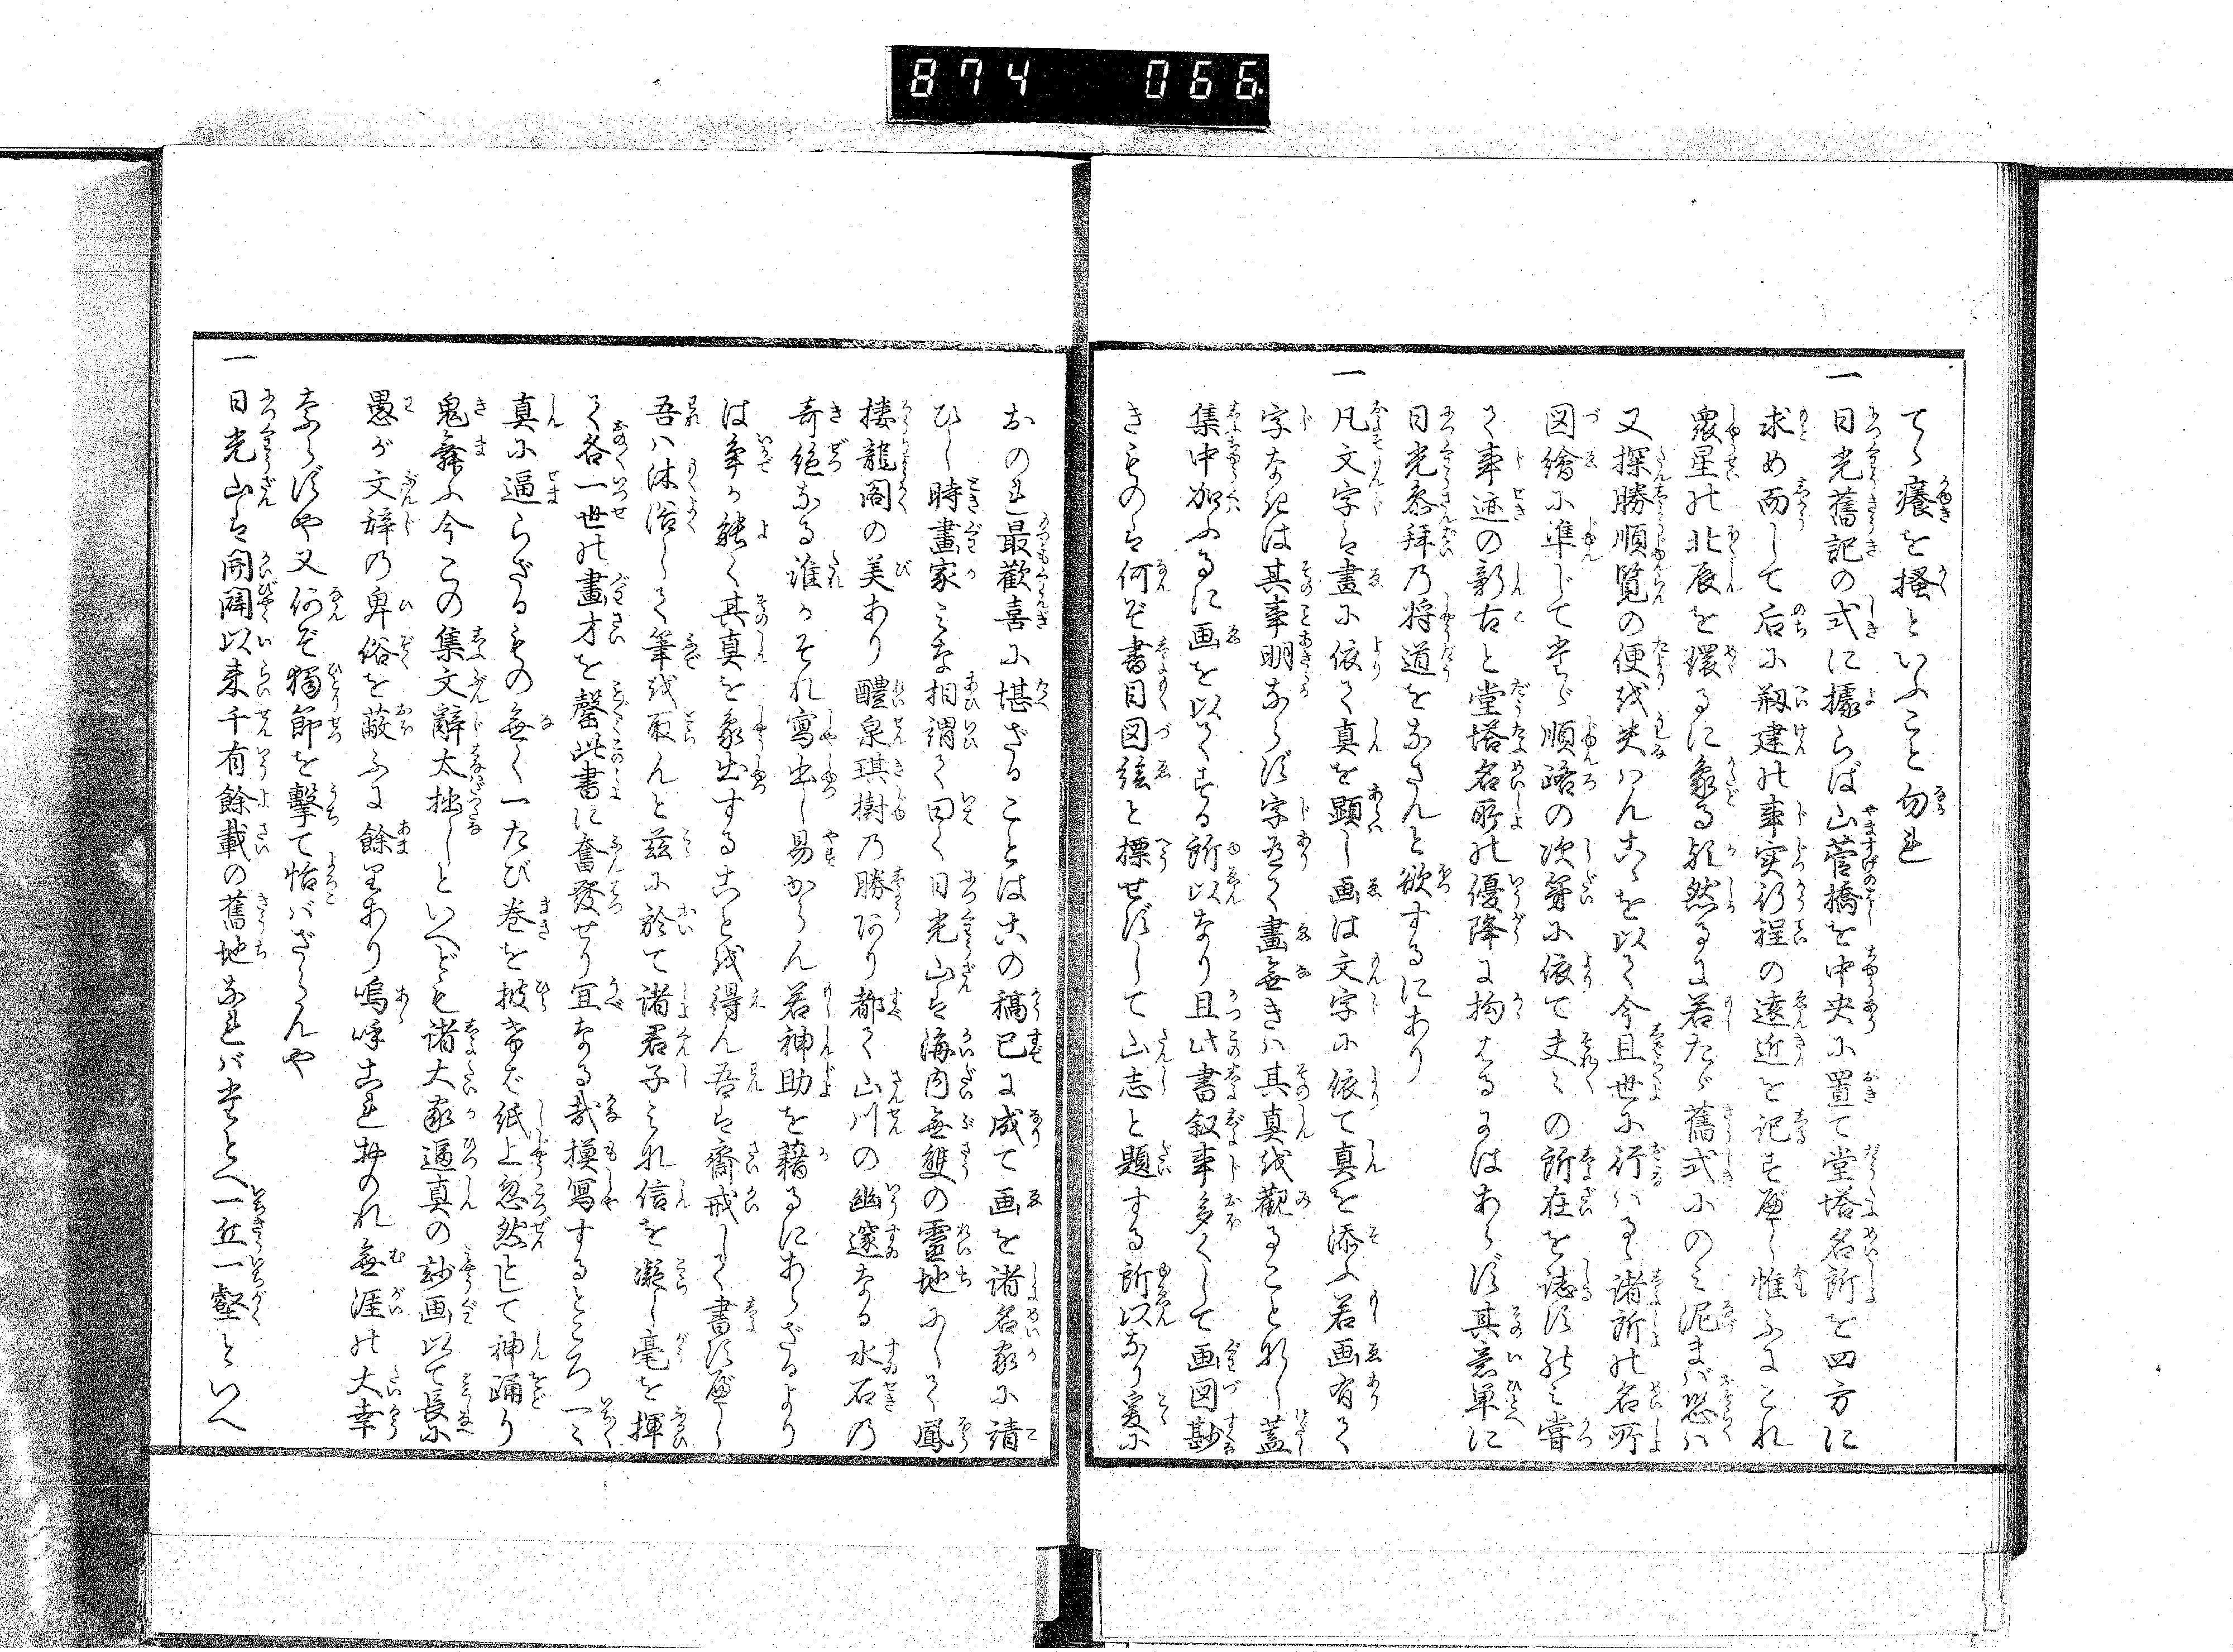 874 066
てら癢を搔といふこと勿れ
一日光舊記の式に據らば山菅橋を中央に置て堂塔名所を四方に
求め而して后に剏建の事実行程の遠近を記すべし惟ふにこれ
衆星の北辰を環るに象る歟然るに若たゞ舊式にのみ泥まば恐は
又探勝順覧の便を失はんこゝを以て今且世に行はるゝ諸所の名所
図繪に準じてたゞ順路の次第に依て夫々の所在を誌すのみ嘗
て事迹の新古と堂塔名所の優降に拘はるにはあらず其意単に
日光参拜の将道をなさんと欲するにあり
一凡文字は畫に依て真を顕し画は文字に依て真を添ふ若画有て
字なきは其事明ならず字ありて畫無きは其真を觀ること難し蓋
集中加ふるに画を以てする所以なり且此書叙事多くして画図尠
きものは何ぞ書目図絵と標せずして山志と題する所以なり爰に
おのれ最歡喜に堪ざることはこの稿已に成て画を諸名家に請
ひし時畫家みな相謂て曰く日光山は海内無雙の靈地にして鳳
樓龍閣の美あり醴泉琪樹の勝あり都て山川の幽邃なる水石の
奇絶なる誰かそれ寫出し易からん若神助を藉るにあらざるより
は争か能く其真を象出することを得ん吾は齋戒して書すべし
吾は沐浴して筆を取んと茲に於て諸君子みな信を凝し毫を揮
て各一世の畫才を罄此書に奮發せり宜なる哉摸寫するところ一々
真に逼らざるもの無く一たび巻を披けば紙上忽然として神踊り
鬼舞ふ今この集文辭太拙しといへども諸大家逼真の妙画以て長に
愚が文辞の卑俗を蔽ふに餘りあり嗚呼これおのれ無涯の大幸
ならずや又何ぞ獨節を擊て怡ばざらんや
一日光山は開闢以来千有餘載の舊地なればたとへ一丘一壑といへ